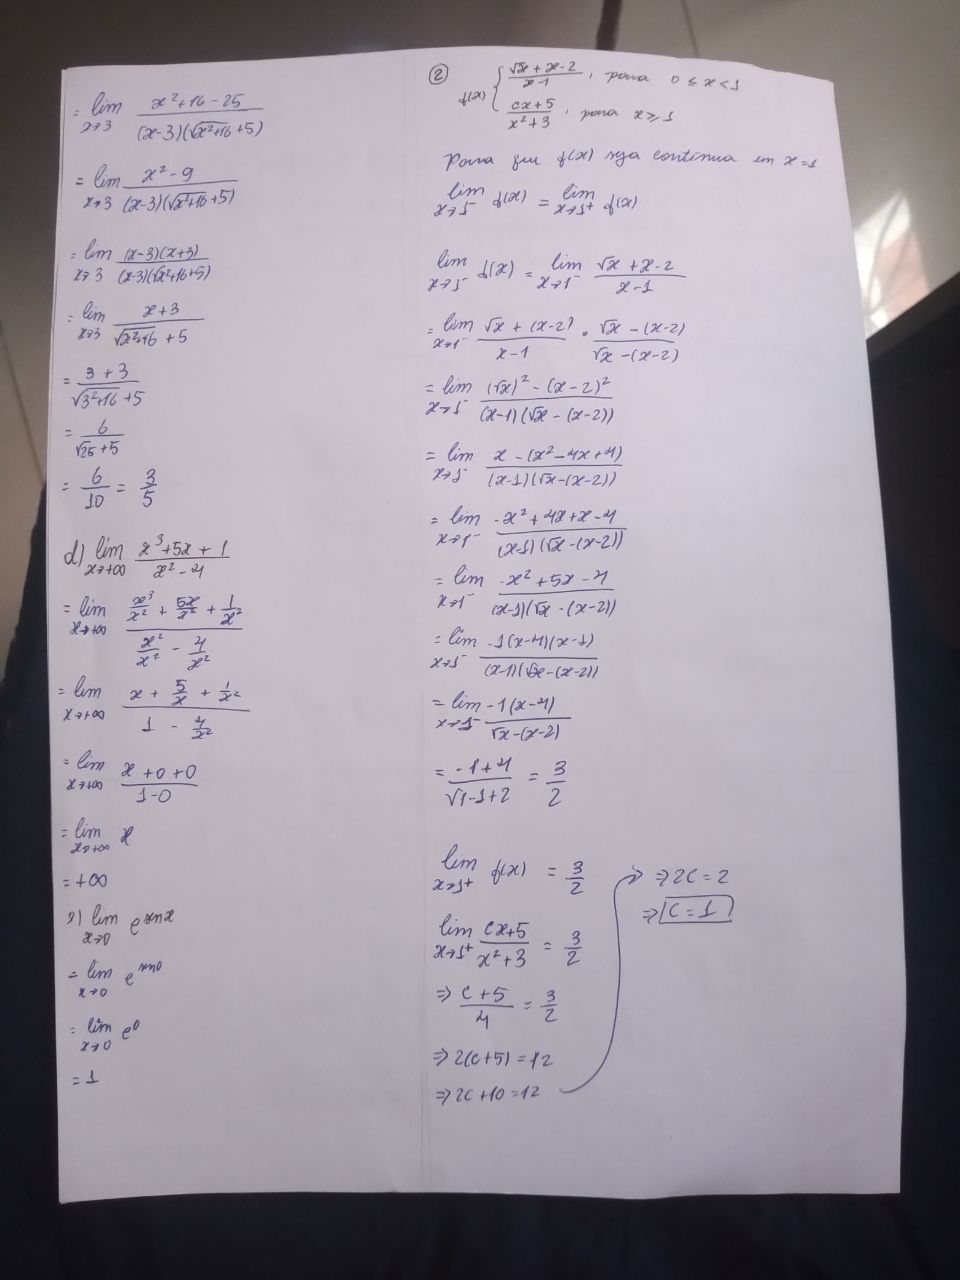 = lim x→3 (x²+16-25)/((x-3)(√(x²+16)+5))
= lim x→3 (x²-9)/((x-3)(√(x²+16)+5))
= lim x→3 ((x-3)(x+3))/((x-3)(√(x²+16)+5))
= lim x→3 (x+3)/(√(x²+16)+5)
= (3+3)/(√(3²+16)+5)
= 6/(√25+5)
= 6/10 = 3/5
d) lim x→+∞ (x³+5x+1)/(x²-4)
= lim x→+∞ (x³/x² + 5x/x² + 1/x²)/(x²/x² - 4/x²)
= lim x→+∞ (x + 5/x + 1/x²)/(1 - 4/x²)
= lim x→+∞ (x+0+0)/(1-0)
= lim x→+∞ x
= +∞
lim x→0 e^(sen x)
= lim x→0 e^(sen 0)
= lim x→0 e⁰
= 1
② f(x) { (√x+x-2)/(x-1), para 0 ≤ x < 1
(cx+5)/(x²+3), para x ≥ 1
Para que f(x) seja contínua em x=1
lim x→1⁻ f(x) = lim x→1⁺ f(x)
lim x→1⁻ f(x) = lim x→1⁻ (√x+x-2)/(x-1)
= lim x→1⁻ (√x+(x-2))/(x-1) · (√x-(x-2))/(√x-(x-2))
= lim x→1⁻ ((√x)²-(x-2)²)/((x-1)(√x-(x-2)))
= lim x→1⁻ (x-(x²-4x+4))/((x-1)(√x-(x-2)))
= lim x→1⁻ (-x²+4x+x-4)/((x-1)(√x-(x-2)))
= lim x→1⁻ (-x²+5x-4)/((x-1)(√x-(x-2)))
= lim x→1⁻ (-1(x-4)(x-1))/((x-1)(√x-(x-2)))
= lim x→1⁻ (-1(x-4))/(√x-(x-2))
= (-1+4)/(√1-1+2) = 3/2
lim x→1⁺ f(x) = 3/2
lim x→1⁺ (cx+5)/(x²+3) = 3/2
⇒ (c+5)/4 = 3/2
⇒ 2(c+5) = 12
⇒ 2c+10 = 12
⇒ 2c = 2
⇒ c = 1